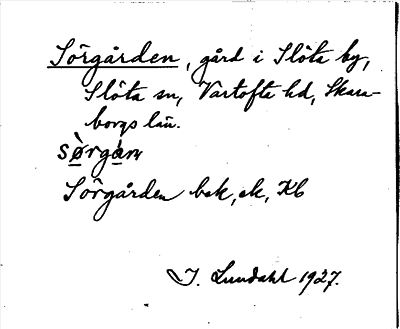 Sörgården, gård i Slöta by,
Slöta sn, Vartofta hd, Skara-
borgs län.
Sörgården bek, ek, Kb
I. Lundahl 1927.